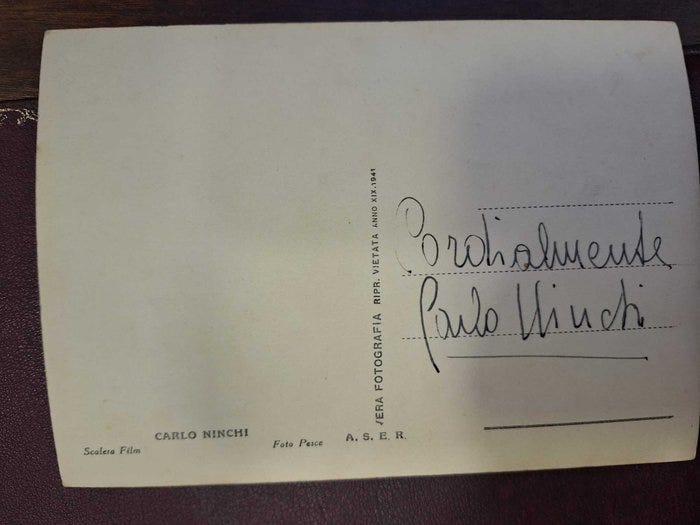 Cordialmente
Carlo Ninchi
VERA FOTOGRAFIA RIPR. VIETATA ANNO XIX.1941
CARLO NINCHI
Scalera Film
Foto Pesce
A. S. E. R.